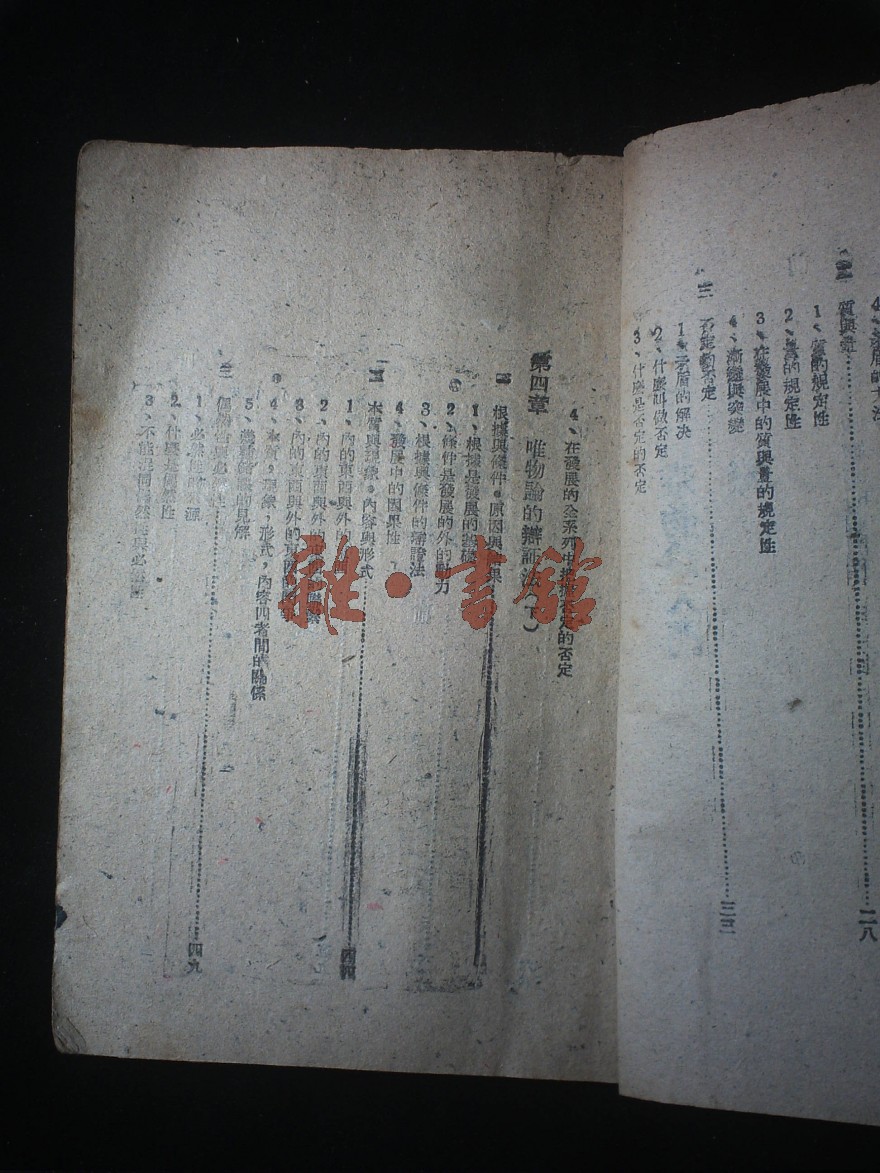 質與量
二八
1、質的規定性
2、量的規定性
3、在發展中的質與量的規定性
4、漸變與突變
三 否定的否定
三三
1、矛盾的解決
2、什麼叫做否定
3、什麼是否定的否定
4、在發展的全系列中
否定的否定
第四章 唯物論的辯証法(下)
根據與條件·原因與結果
1、根據是發展的基礎
2、條件是發展的外的動力
3、根據與條件的辯證法
4、發展中的因果性
二 本質與現象·內容與形式
四四
1、內的東西與外的
2、內的東西與外的
3、內的東西與外的東西
4、本質，現象，形式，內容四者間的關係
5、
的見解
三 偶然性與必然性
四九
1、必然性的
源
2、什麼是偶然性
3、不能混同偶然性與必然性
雜·書館